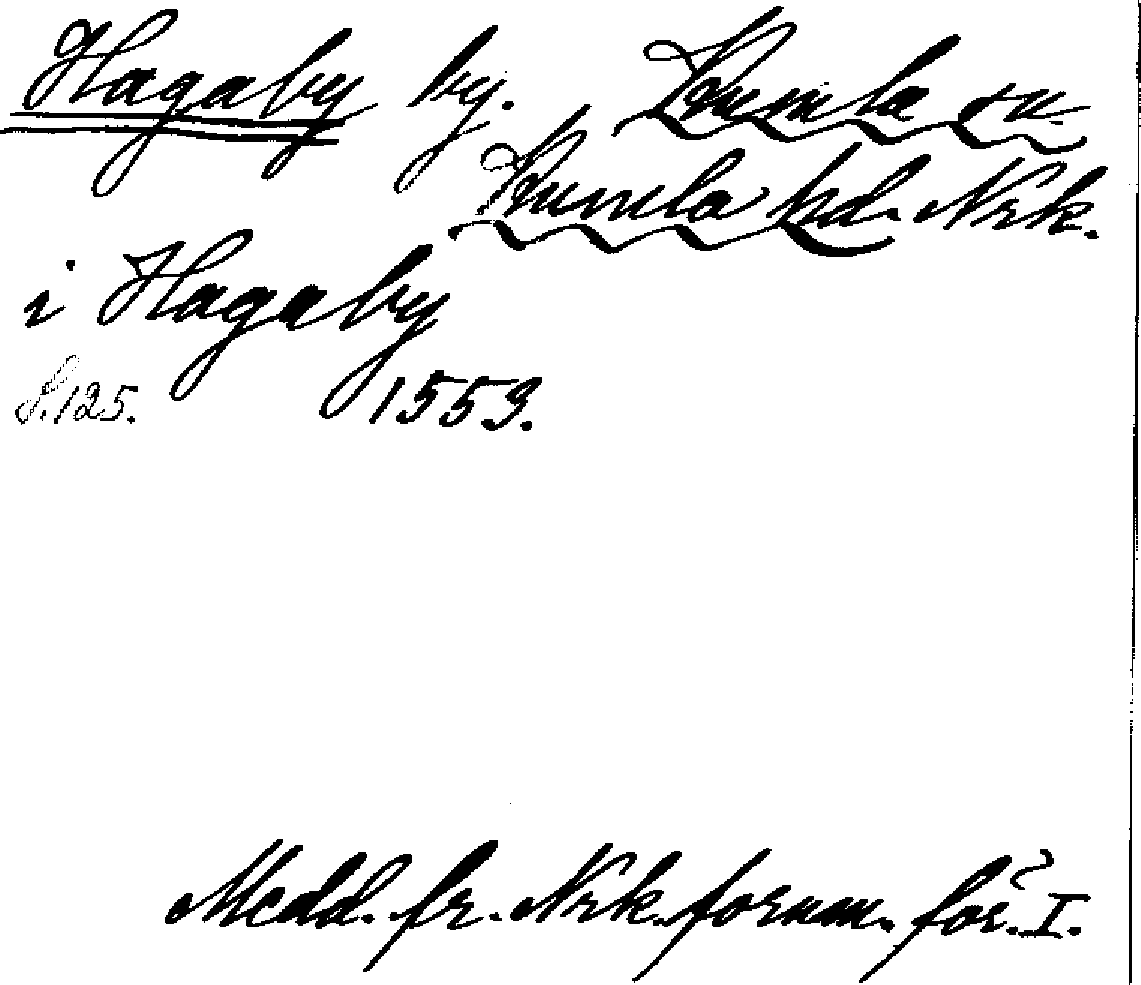 Hagaby by. Kumla sn.
Kumla hd. Nrk.
i Hagaby
S. 125. 1553.
Medd. fr. Nrk. fornm. för. I.